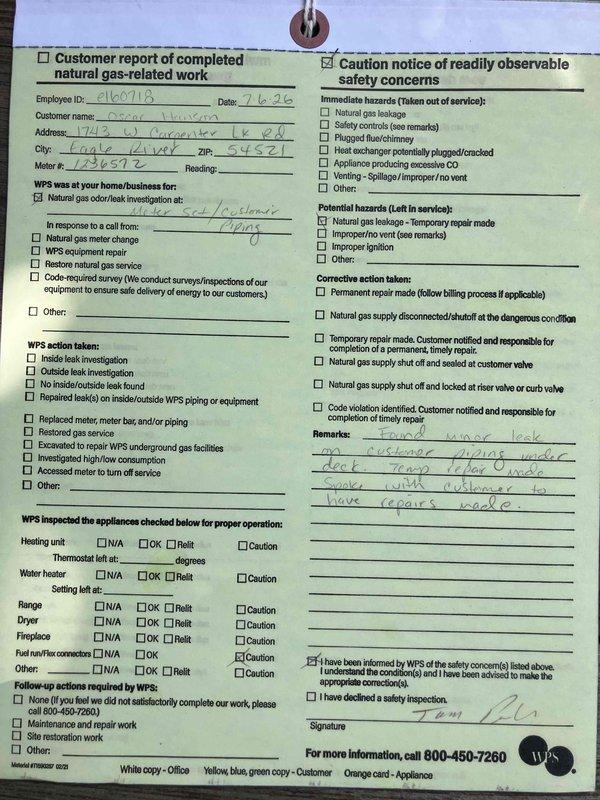 ☐ Customer report of completed
natural gas-related work
Employee ID: e160718 Date: 7-6-26
Customer name: Oscar
Address: 1743 W Carpenter Lk Rd
City: Eagle River ZIP: 54521
Meter #: 1236572 Reading:
WPS was at your home/business for:
☒ Natural gas odor/leak investigation at:
Meter Set/Customer
In response to a call from: Piping
☐ Natural gas meter change
☐ WPS equipment repair
☐ Restore natural gas service
☐ Code-required survey (We conduct surveys/inspections of our
equipment to ensure safe delivery of energy to our customers.)
☐ Other:
WPS action taken:
☐ Inside leak investigation
☐ Outside leak investigation
☐ No inside/outside leak found
☐ Repaired leak(s) on inside/outside WPS piping or equipment
☐ Replaced meter, meter bar, and/or piping
☐ Restored gas service
☐ Excavated to repair WPS underground gas facilities
☐ Investigated high/low consumption
☐ Accessed meter to turn off service
☐ Other:
WPS inspected the appliances checked below for proper operation:
Heating unit ☐ N/A ☐ OK ☐ Relit ☐ Caution
Thermostat left at: degrees
Water heater ☐ N/A ☐ OK ☐ Relit ☐ Caution
Setting left at:
Range ☐ N/A ☐ OK ☐ Relit ☐ Caution
Dryer ☐ N/A ☐ OK ☐ Relit ☐ Caution
Fireplace ☐ N/A ☐ OK ☐ Relit ☐ Caution
Fuel run/Flex connectors ☐ N/A ☐ OK ☒ Caution
Other: ☐ N/A ☐ OK ☐ Relit ☐ Caution
Follow-up actions required by WPS:
☐ None (If you feel we did not satisfactorily complete our work, please
call 800-450-7260.)
☐ Maintenance and repair work
☐ Site restoration work
☐ Other:
☒ Caution notice of readily observable
safety concerns
Immediate hazards (Taken out of service):
☐ Natural gas leakage
☐ Safety controls (see remarks)
☐ Plugged flue/chimney
☐ Heat exchanger potentially plugged/cracked
☐ Appliance producing excessive CO
☐ Venting - Spillage/improper/no vent
☐ Other:
Potential hazards (Left in service):
☒ Natural gas leakage - Temporary repair made
☐ Improper/no vent (see remarks)
☐ Improper ignition
☐ Other:
Corrective action taken:
☐ Permanent repair made (follow billing process if applicable)
☐ Natural gas supply disconnected/shutoff at the dangerous condition
☐ Temporary repair made. Customer notified and responsible for
completion of a permanent, timely repair.
☐ Natural gas supply shut off and sealed at customer valve
☐ Natural gas supply shut off and locked at riser valve or curb valve
☐ Code violation identified. Customer notified and responsible for
completion of timely repair
Remarks: Found minor leak
on customer piping under
deck. Temp repair made
Spoke with customer to
have repairs made.
☒ I have been informed by WPS of the safety concern(s) listed above.
I understand the condition(s) and I have been advised to make the
appropriate correction(s).
☐ I have declined a safety inspection.
Signature
For more information, call 800-450-7260
WPS
White copy - Office Yellow, blue, green copy - Customer Orange card - Appliance